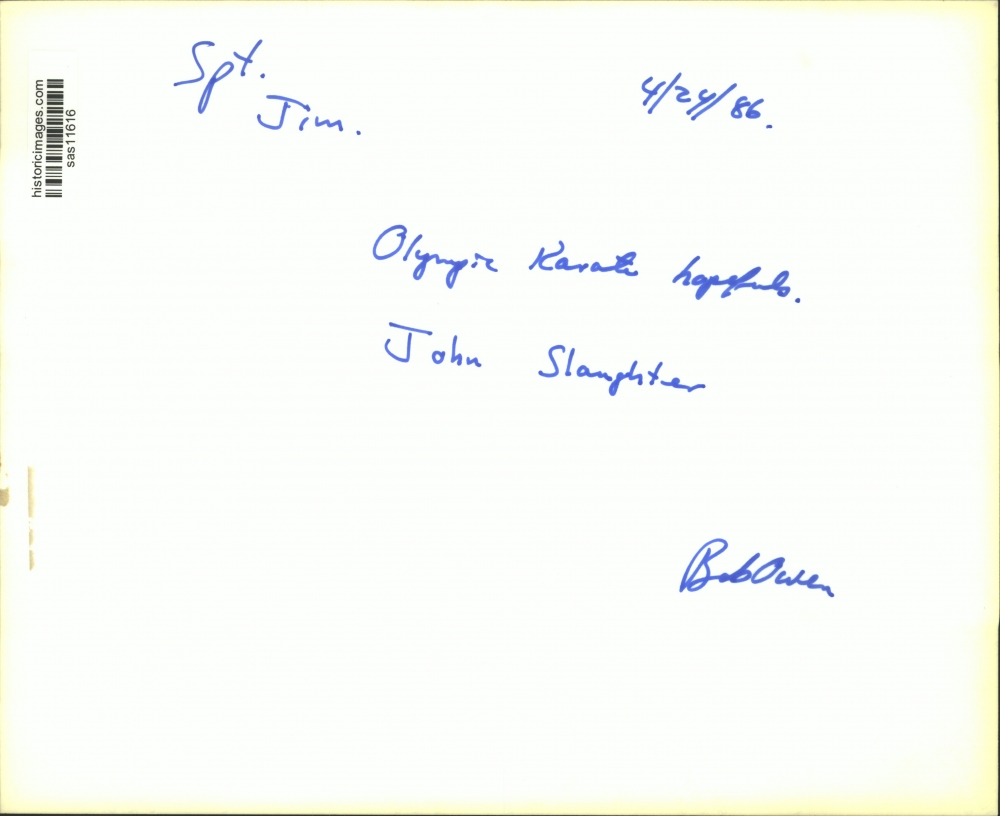 Spt.
Jim.
4/24/86.
historicimages.com
sas11616
Olympic Karate hopefuls.
John Slaughter
Bob Owen